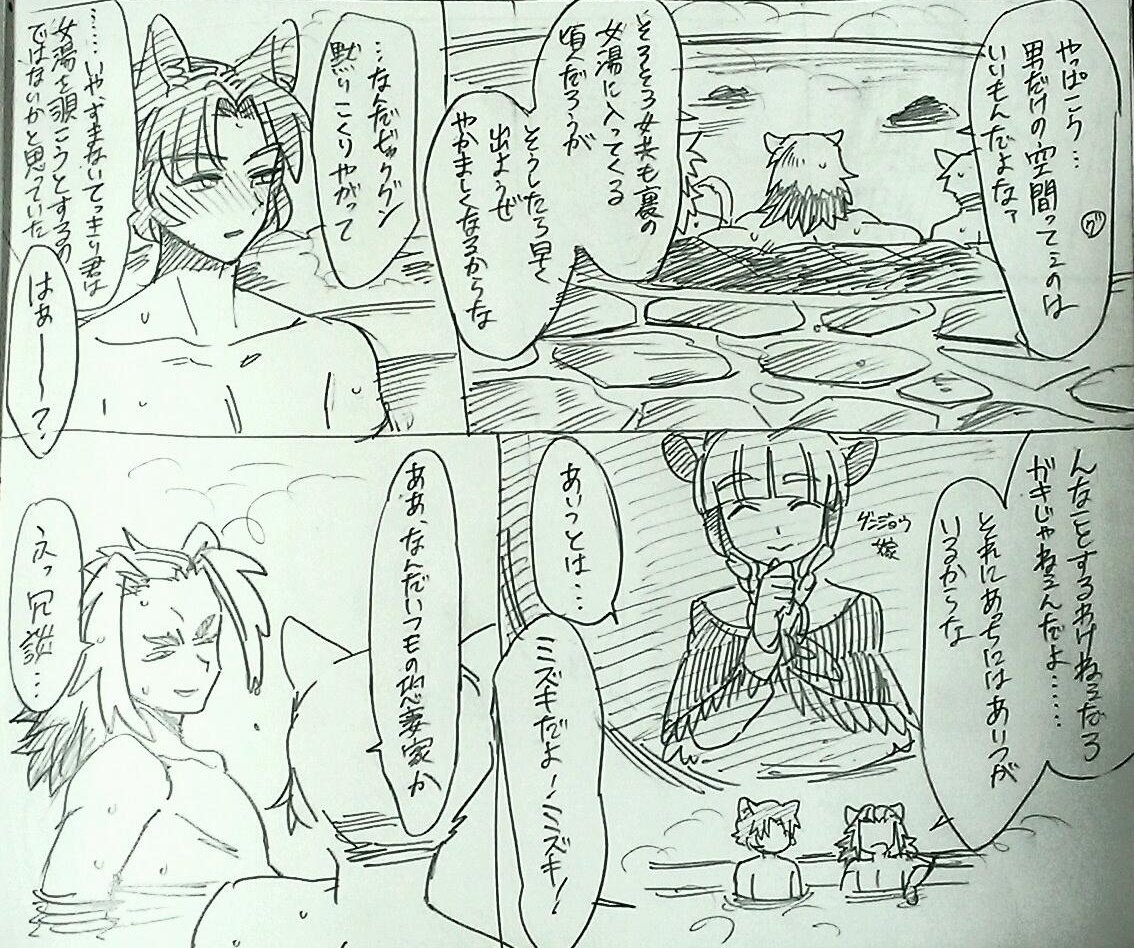 やっぱこう…
男だけの空間ってェのは
いいもんだよなァ
そろそろ女共も裏の
女湯に入ってくる
頃だろうが
そうしたら早く
出ようぜ
やかましくなるからな
…なんだゼックグン
黙りこくりやがって
……いやすまないてっきり君は
女湯を覗こうとするの
ではないかと思っていた
はぁーー？
んなことするわけねェだろ
がきじゃねェんだよ……
それにあっちにはあいつが
いるからな
ゲンジョウ
嫁
あいつとは…
ミズキだよ！ミズキ！
ああ、なんだいつもの愛妻家か
ふっ冗談…